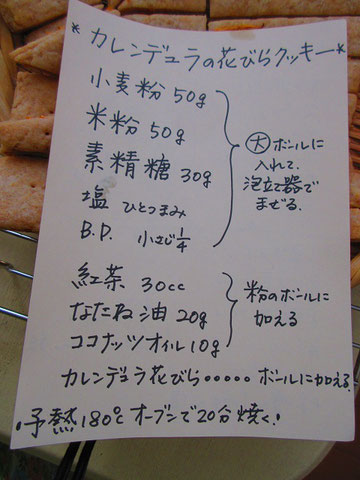 *カレンデュラの花びらクッキー*
小麦粉 50g
米粉 50g
素精糖 30g
塩 ひとつまみ
B.P. 小さじ1/4
大 ボールに
入れて、
泡立て器で
まぜる。
紅茶 30cc
なたね油 20g
ココナッツオイル 10g
粉のボールに
加える
カレンデュラ花びら・・・・・ボールに加える。
・予熱180℃オーブンで20分焼く。